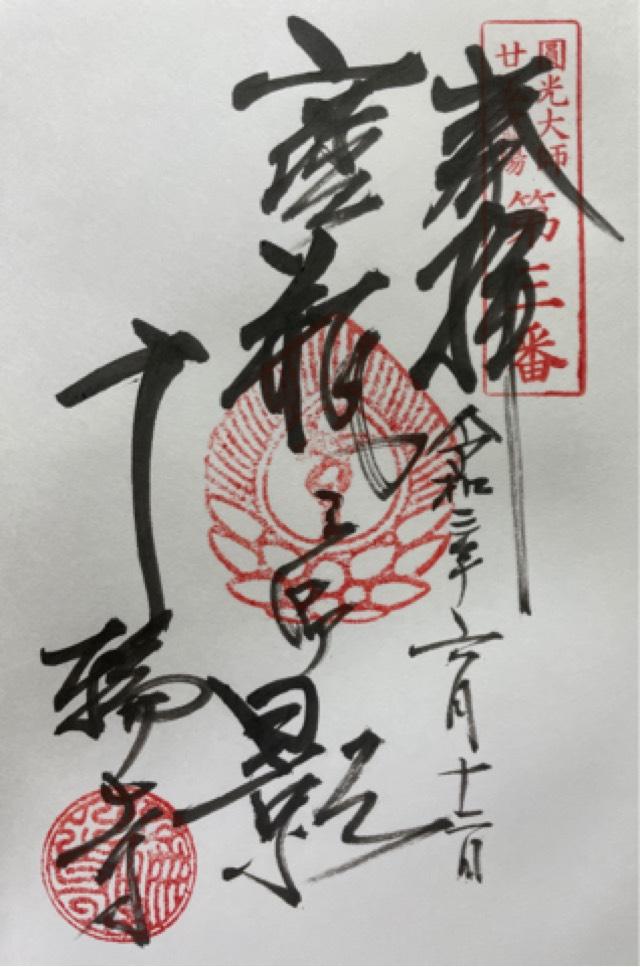 圓光大師
廿五霊場
第三番
奉拝
令和二年六月十二日
寳瓶御影
十輪寺